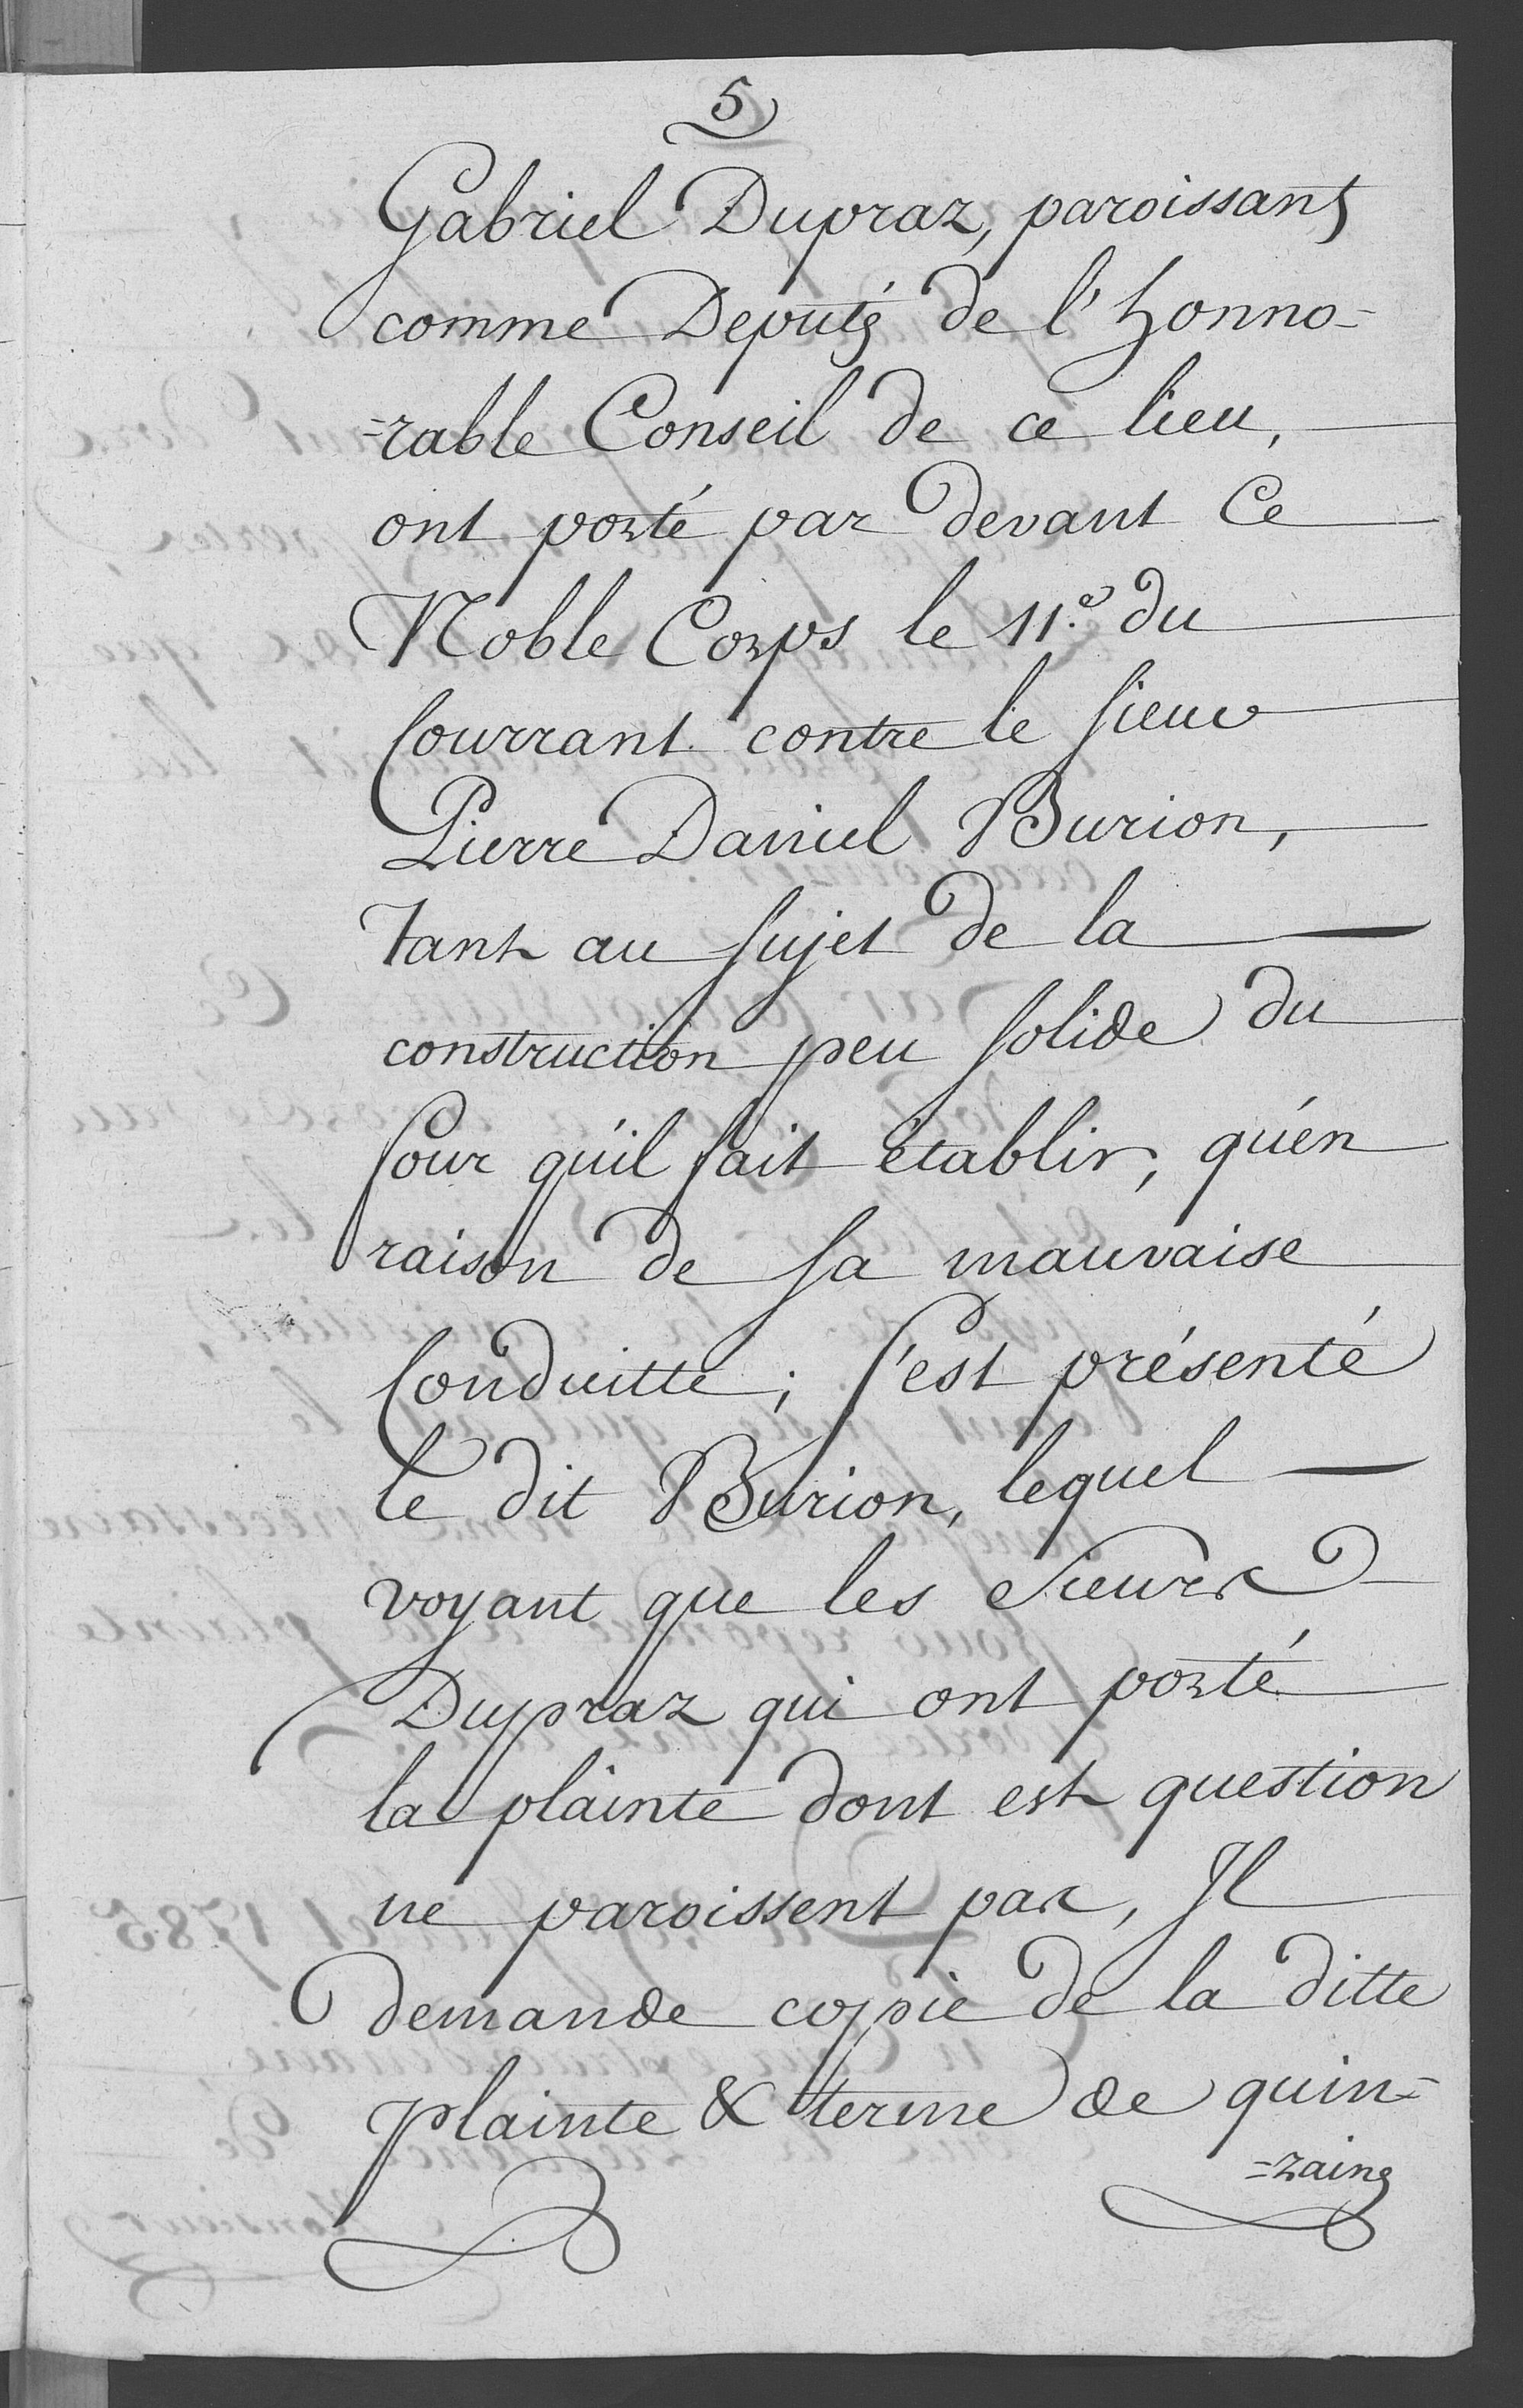 5
Gabriel Dupraz, paroissant
comme Deputés de l'honno-
-rable Conseil de ce lieu,
ont porté par devant Ce
Noble Corps le 11.e du
Courrant contre le sieur
Pierre Daniel Burion,
tant au sujet de la
construction peu solide du
four qu'il fait établir, qu'en
raison de sa mauvaise
Conduitte; s'est présenté
le dit Burion, lequel
voyant que les Sieurs
Dupraz qui ont porté
la plainte dont est question
ne paroissent pas, Il
demande copie de la ditte
plainte & terme de quin=
=zaine